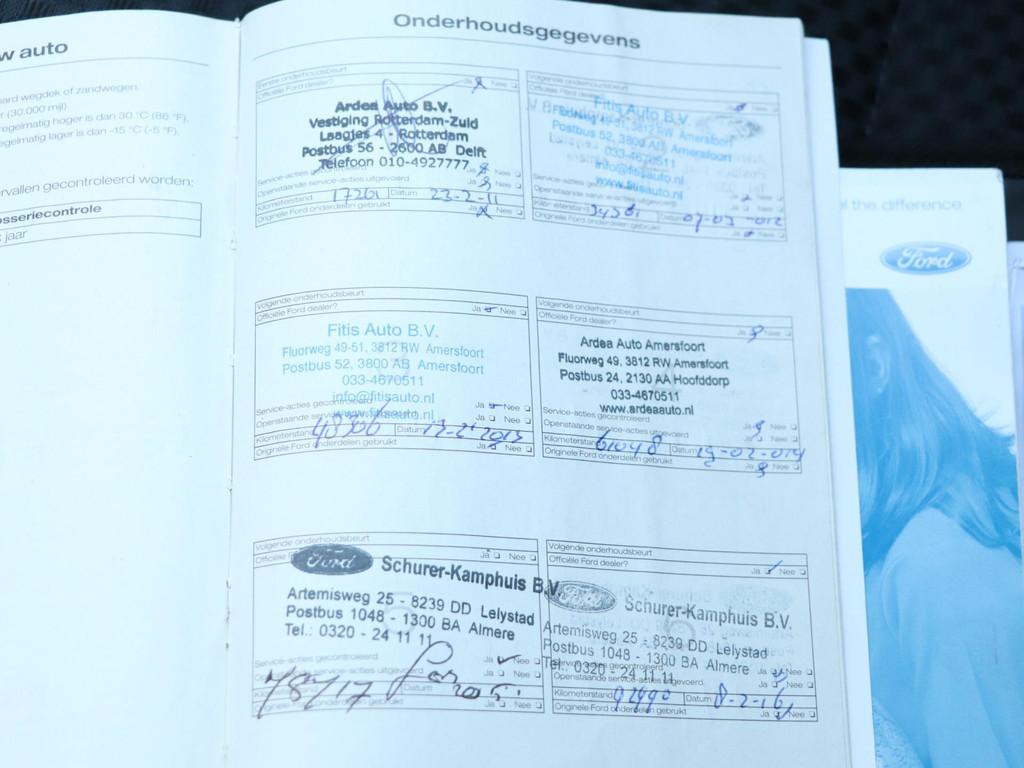 w auto
ard wegdek of zandwegen.
r (30.000 mijl).
regelmatig hoger is dan 30 °C (86 °F).
egelmatig lager is dan -15 °C (-5 °F).
ervallen gecontroleerd worden:
osseriecontrole
jaar
Onderhoudsgegevens
Eerste onderhoudsbeurt
Officiële Ford dealer? Ja Nee
Ardea Auto B.V.
Vestiging Rotterdam-Zuid
Laagjes 4 - Rotterdam
Postbus 56 - 2600 AB Delft
Telefoon 010-4927777
Service-acties gecontroleerd Ja Nee
Openstaande service-acties uitgevoerd Ja Nee
Kilometerstand 17261 Datum 23-2-11
Originele Ford onderdelen gebruikt Ja Nee
Volgende onderhoudsbeurt
Officiële Ford dealer? Ja Nee
Fitis Auto B.V.
Fluorweg 49-51, 3812 RW Amersfoort
Postbus 52, 3800 AB Amersfoort
033-4670511
info@fitisauto.nl
www.fitisauto.nl
Service-acties gecontroleerd Ja Nee
Openstaande service-acties uitgevoerd Ja Nee
Kilometerstand Datum 07-03-012
Originele Ford onderdelen gebruikt Ja Nee
Volgende onderhoudsbeurt
Officiële Ford dealer? Ja Nee
Fitis Auto B.V.
Fluorweg 49-51, 3812 RW Amersfoort
Postbus 52, 3800 AB Amersfoort
033-4670511
info@fitisauto.nl
www.fitisauto.nl
Service-acties gecontroleerd Ja Nee
Openstaande service-acties uitgevoerd Ja Nee
Kilometerstand 48306 Datum 13-2-2013
Originele Ford onderdelen gebruikt Ja Nee
Volgende onderhoudsbeurt
Officiële Ford dealer? Ja Nee
Ardea Auto Amersfoort
Fluorweg 49, 3812 RW Amersfoort
Postbus 24, 2130 AA Hoofddorp
033-4670511
www.ardeaauto.nl
Service-acties gecontroleerd Ja Nee
Openstaande service-acties uitgevoerd Ja Nee
Kilometerstand 61048 Datum 19-02-014
Originele Ford onderdelen gebruikt Ja Nee
Volgende onderhoudsbeurt
Officiële Ja Nee
Ford Schurer-Kamphuis B.V.
Artemisweg 25 - 8239 DD Lelystad
Postbus 1048 - 1300 BA Almere
Tel.: 0320 - 24 11 11
Service-acties gecontroleerd Ja Nee
Openstaande service-acties uitgevoerd Ja Nee
78717 Datum 2015
Originele Ford onderdelen gebruikt Ja Nee
Volgende onderhoudsbeurt
Officiële Ford dealer? Ja Nee
Schurer-Kamphuis B.V.
Artemisweg 25 - 8239 DD Lelystad
Postbus 1048 - 1300 BA Almere
Tel.: 0320 - 24 11 11
Service-acties gecontroleerd Ja Nee
Openstaande service-acties uitgevoerd Ja Nee
Kilometerstand 92990 Datum 8-2-16
Originele Ford onderdelen gebruikt Ja Nee
the difference
Ford